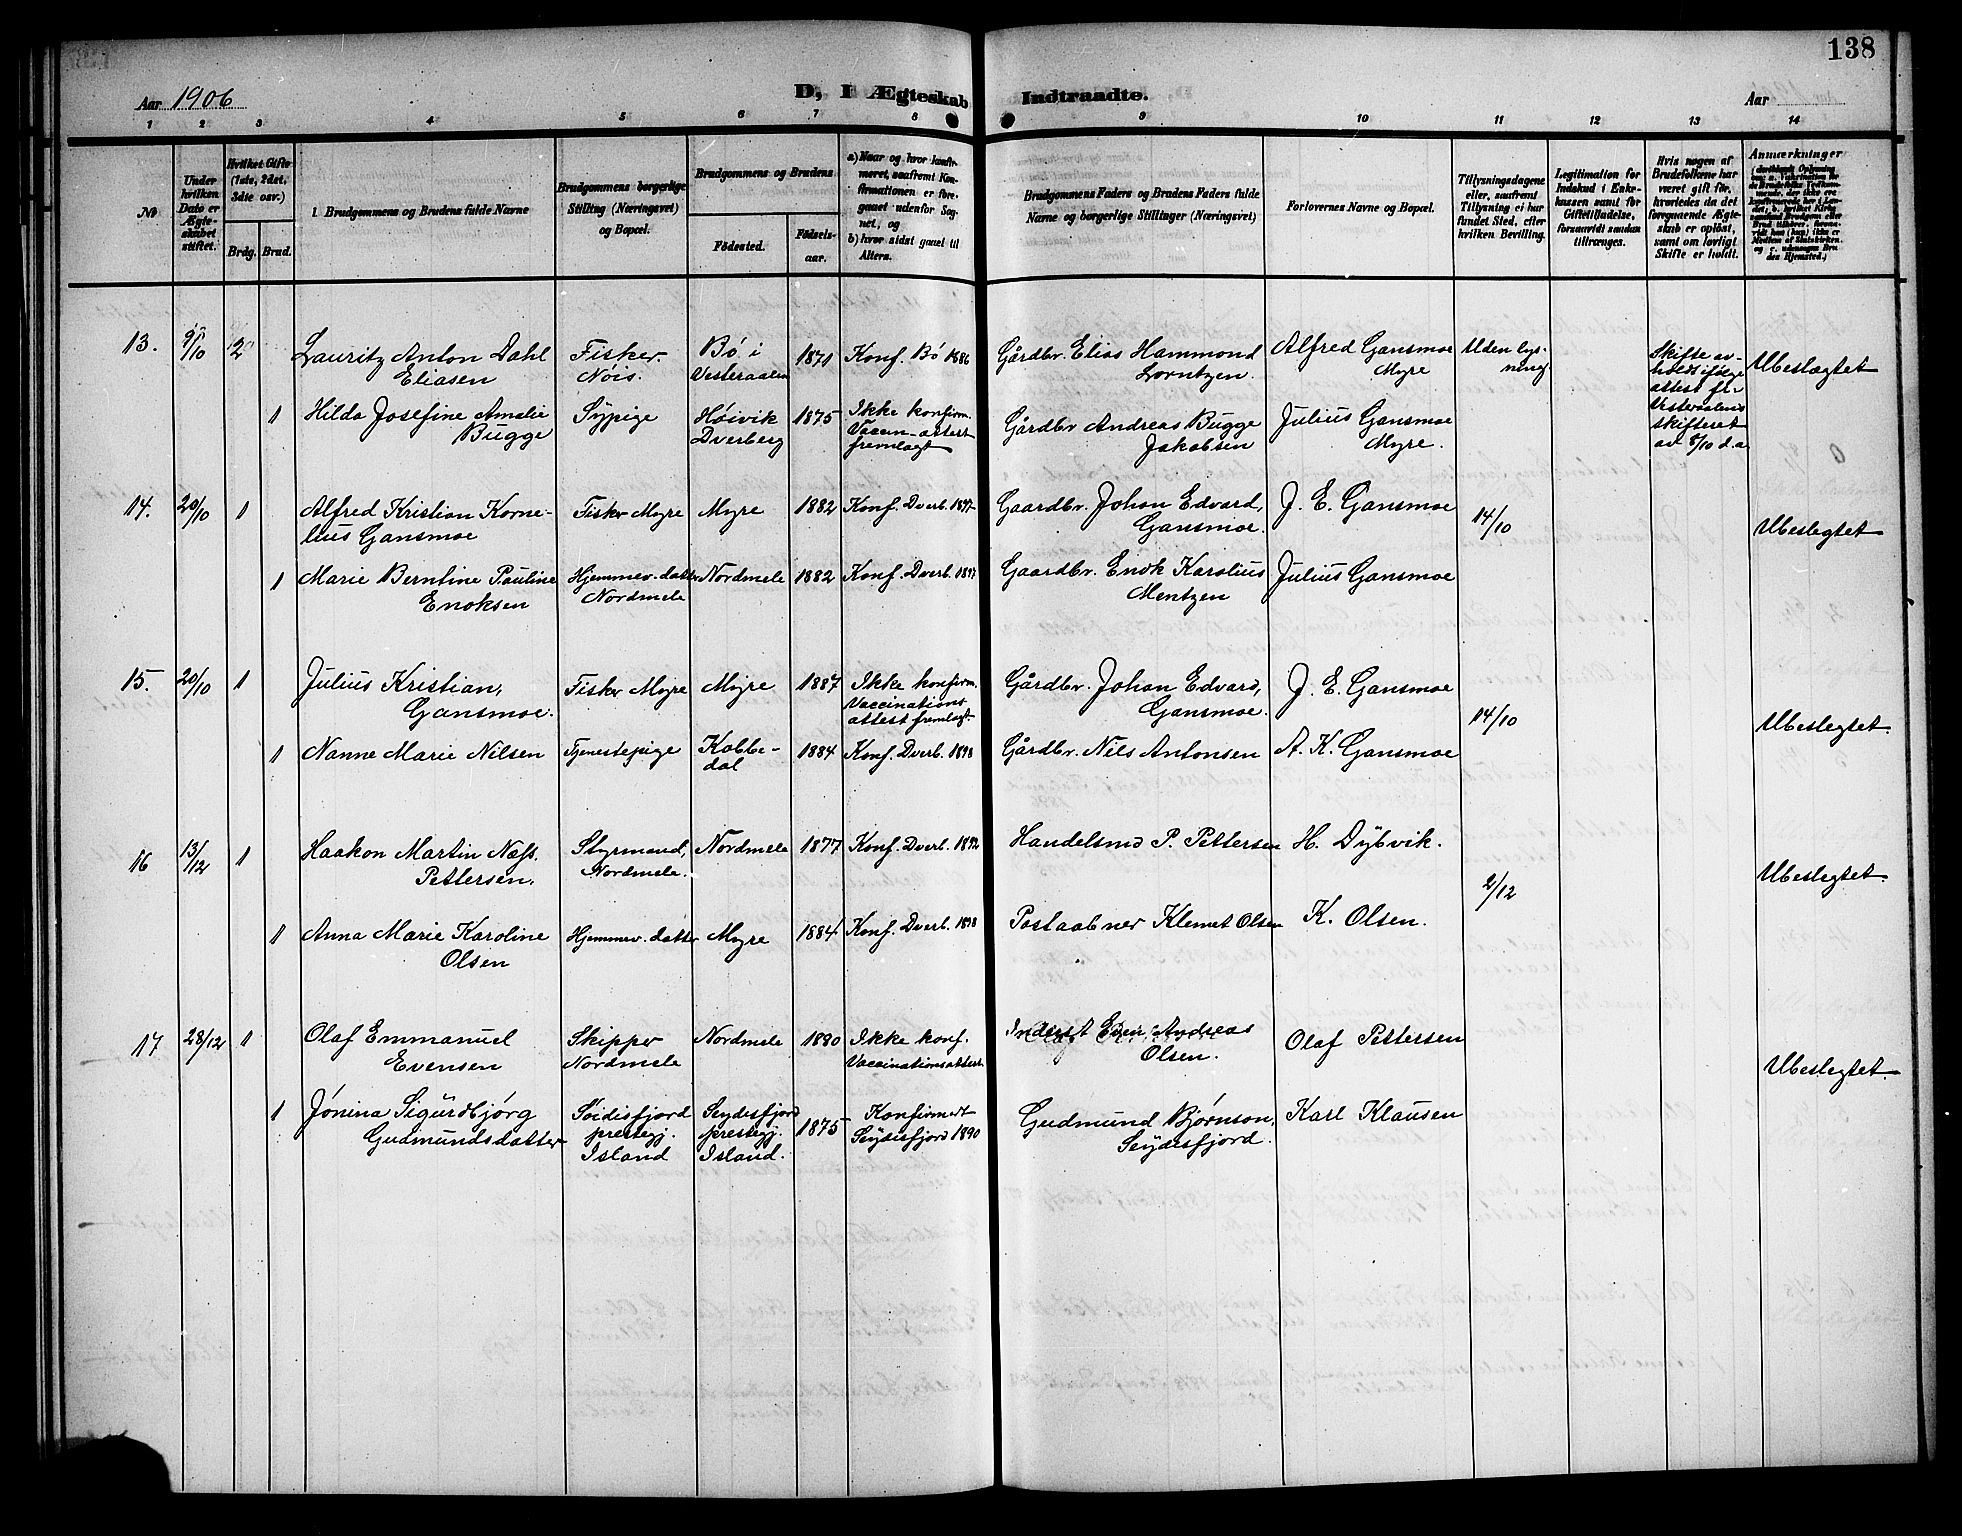 138
Aar 1906
D, I Ægteskab Indtraadte.
Aar
1 2 3 4 5 6 7 8 9 10 11 12 13 14
No
Under hvilken Dato er Ægteskabet stiftet.
Hvilket Gifte (1ste, 2det, 3dte osv.)
Brdg. Brud.
1. Brudgommens og Brudens fulde Navne
Brudgommens borgerlige Stilling (Næringsvei) og Bopæl.
Brudgommens og Brudens
Fødested.
Fødselsaar.
a) Naar og hvor konfirmeret, saafremt Konfirmationen er foregaaet udenfor Sognet, og
b) hvor sidst gaaet til Alters.
Brudgommens Faders og Brudens Faders fulde Navne og borgerlige Stillinger (Næringsvei)
Forlovernes Navne og Bopæl.
Tillysningsdagene eller, saafremt Tillysning ei har fundet Sted, efter hvilken Bevilling.
Legitimation for Indskud i Enkekassen samt for Giftetilladelse, forsaavidt saadan tiltrænges.
Hvis nogen af Brudefolkene har været gift før, hvorledes da det foregaaende Ægteskab er opløst, samt om lovligt Skifte er holdt.
Anmærkninger
13. 9/10 2
Lauritz Anton Dahl
Eliasen
Fisker.
Nöis.
Bö i
Vesteraalen
1871
Konf. Bö 1886
Gårdbr. Elias Hammond
Lorntzen.
Alfred Gansmoe
Myre
Uden lysning
Skifte avholdt ifølge
attest fr.
Vesteraalens
skifteret
av 8/10 d.a
Ubeslægtet
1
Hilda Josefine Amalie
Bugge
Sypige
Höivik
Dverberg
1875
Ikke konfirm.
Vaccin-attest
fremlagt
Gårdbr Andreas Bugge
Jakobsen
Julius Gansmoe
Myre.
14. 20/10 1
Alfred Kristian Kornelius Gansmoe
Fisker Myre
Myre
1882
Konf. Dverb. 1897
Gaardbr. Johan Edvard,
Gansmoe.
J. E. Gansmoe
14/10
Ubeslegtet
1
Marie Berntine Pauline
Enoksen
Hjemmev. datter
Nordmele
Nordmele
1882
Konf. Dverb. 1897
Gaardbr. Enok Karolius
Mentzen
Julius Gansmoe
15. 20/10 1
Julius Kristian,
Gansmoe.
Fisker Myre
Myre
1887
Ikke konfirm.
Vaccinations
attest fremlagt
Gårdbr. Johan Edvard,
Gansmoe.
J. E. Gansmoe
14/10
Ubeslegtet.
1
Nanne Marie Nilsen
Tjenestepige
Kobbedal
1884
Konf. Dverb. 1898
Gårdbr. Nils Antonsen
A. K. Gansmoe
16 13/12 1
Haakon Martin Næss.
Pettersen.
Styrmand,
Nordmele.
Nordmele
1877
Konf. Dverb. 1892
Handelsmd P. Pettersen
H. Dybvik.
2/12
Ubeslegtet.
1
Anna Marie Karoline
Olsen
Hjemmev. datter
Myre
1884
Konf. Dverb. 1898
Postaabner Klemet Olsen
K. Olsen.
17 28/12 1
Olaf Emmanuel
Evensen
Skipper
Nordmele
Nordmele
1880
Ikke konf.
Vaccinationsattest.
Inderst Even Andreas
Olsen.
Olaf Pettersen
Ubeslegtet.
1
Jónina Sigurdbjörg
Gudmundsdatter
Söidisfjord
prestegj.
Island
Seydesfjord
prestegj.
Island.
1875
Konfirmert
Seydisfjord 1890
Gudmund Björnson,
Seydesfjord.
Karl Klausen